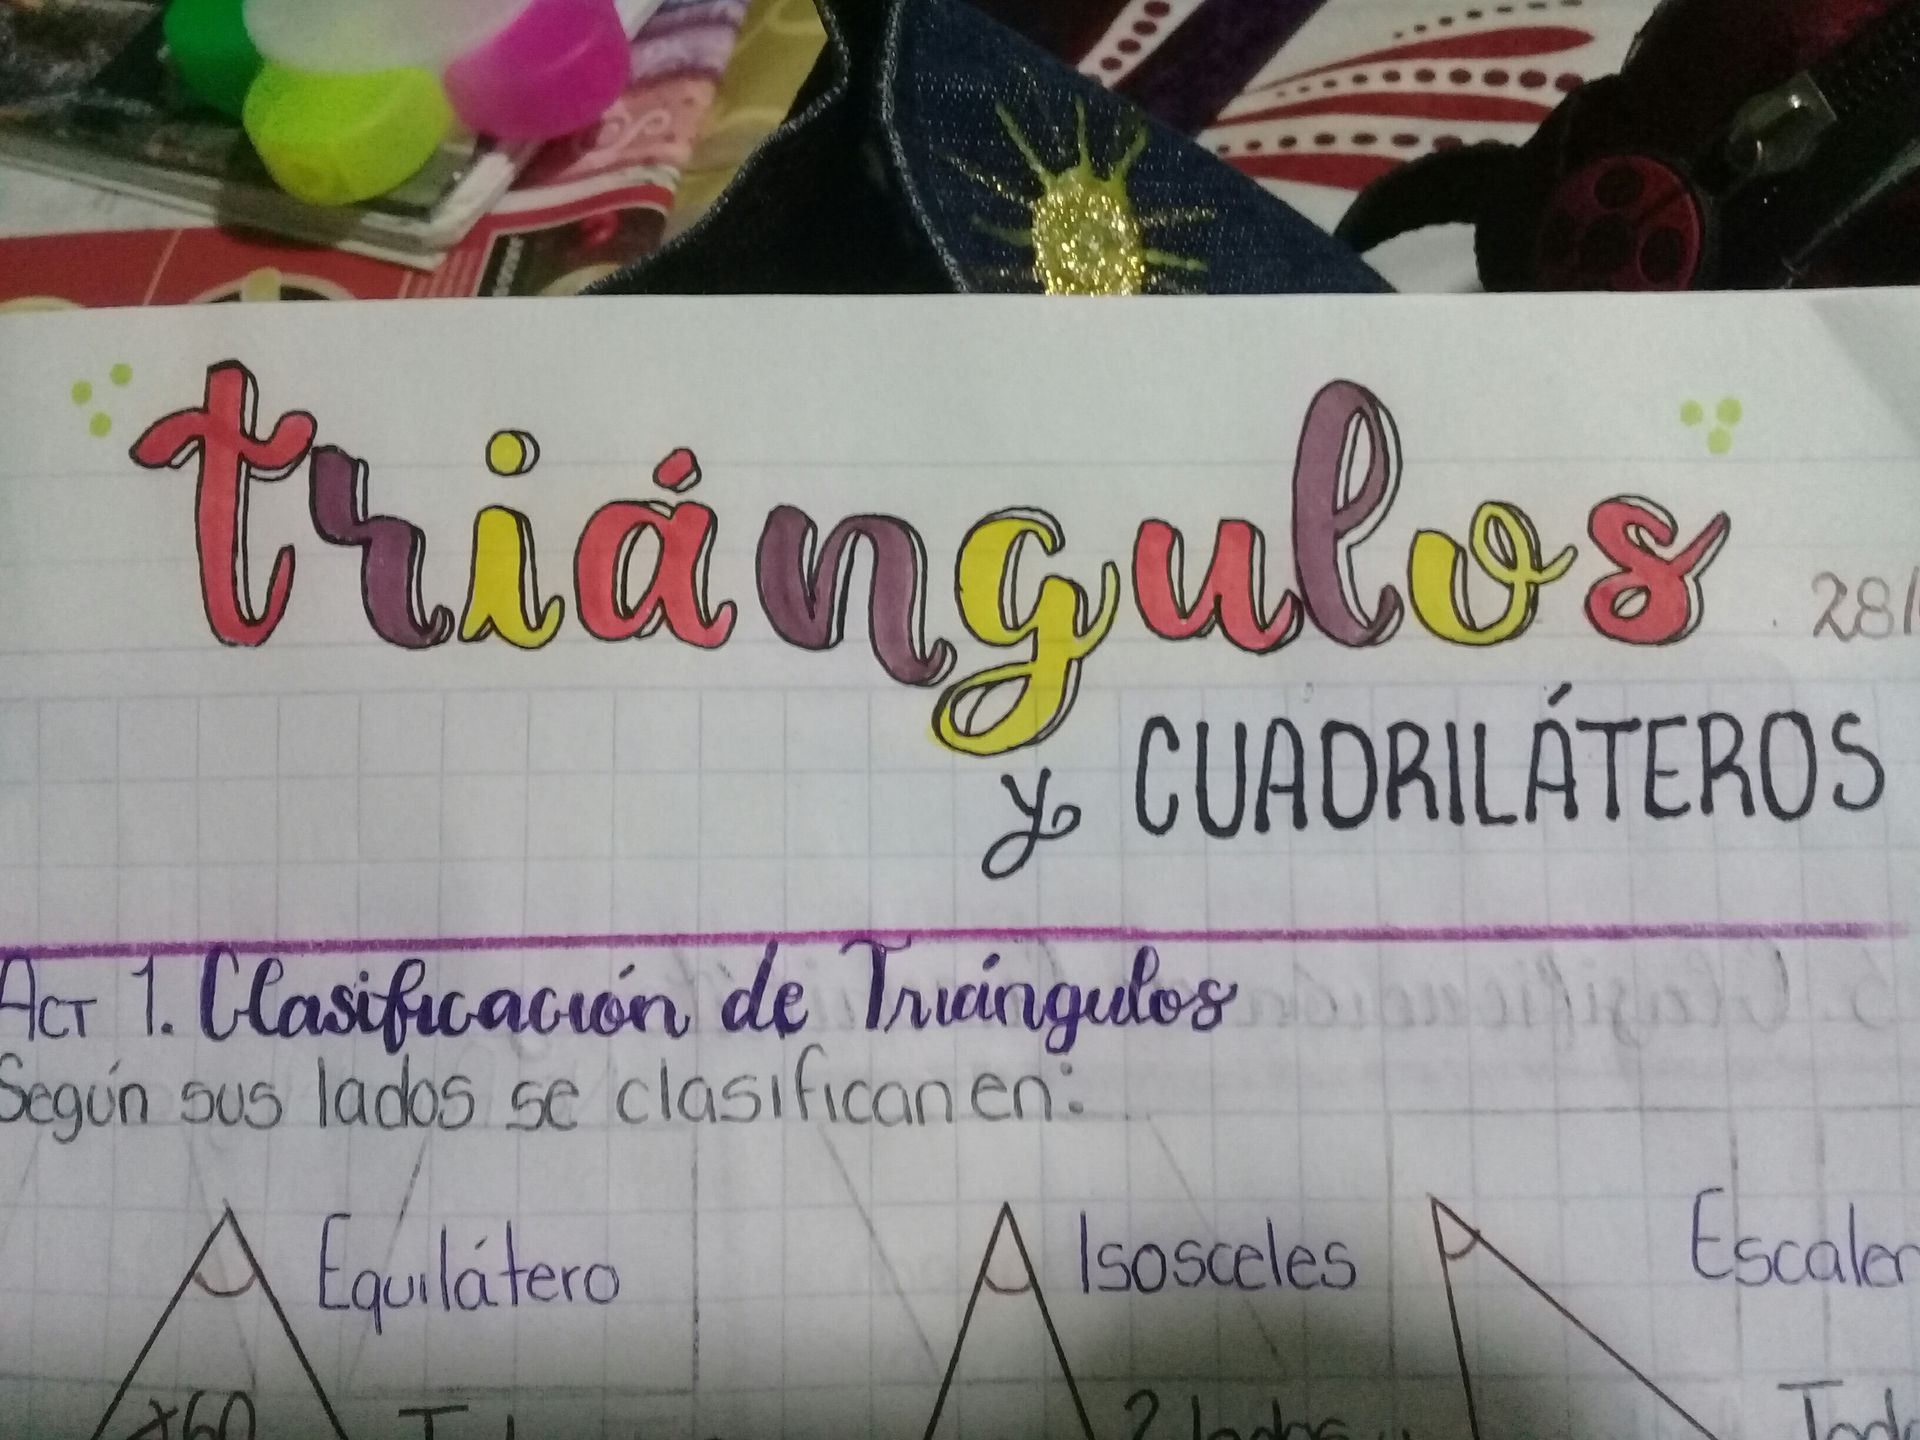 triángulos
28/
y CUADRILÁTEROS
ACT 1. Clasificación de Triángulos
Según sus lados se clasifican en:
Equilátero Isosceles Escalen
60 2 lados